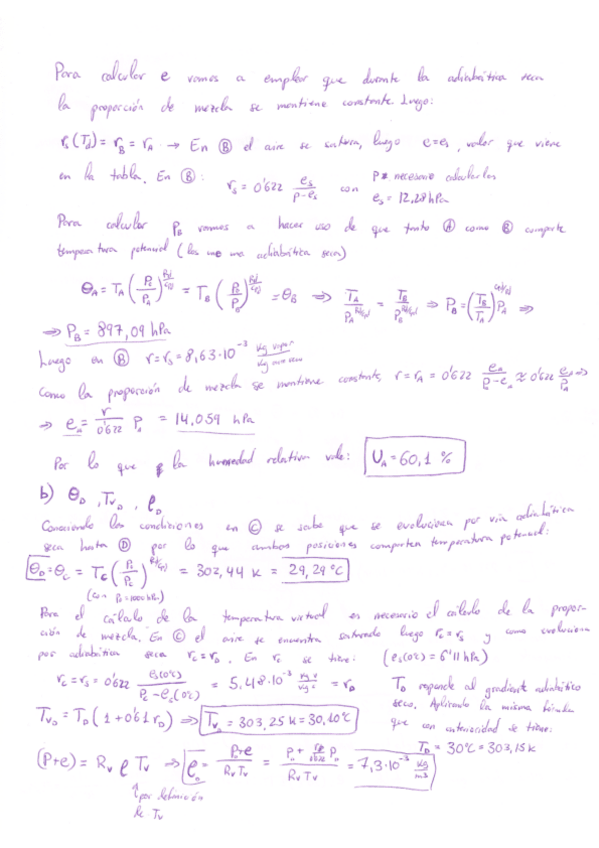 Para calcular e vamos a emplear que durante la adiabática seca
la proporción de mezcla se mantiene constante. Luego:
rₛ(T_d) = r_B = r_A → En Ⓑ el aire se satura, luego e=eₛ, valor que viene
en la tabla. En Ⓑ: rₛ = 0'622 eₛ/(p-eₛ) con
P necesario calcularlos
eₛ = 12,28 hPa
Para calcular P_B vamos a hacer uso de que tanto Ⓐ como Ⓑ comparte
temperatura potencial (los une una adiabática seca)
θ_A = T_A (P₀/P_A)^(Rd/cp) = T_B (P₀/P_B)^(Rd/cp) = θ_B ⇒ T_A/P_A^(Rd/cp) = T_B/P_B^(Rd/cp) ⇒ P_B = (T_B/T_A)^(cp/Rd) P_A ⇒
⇒ P_B = 897,09 hPa
Luego en Ⓑ r = rₛ = 8,63·10⁻³ kg vapor/kg aire seco
Como la proporción de mezcla se mantiene constante, r = r_A = 0'622 e_A/(P-e_A) ≈ 0'622 e_A/P_A ⇒
⇒ e_A = r/0'622 P_A = 14,059 hPa
Por lo que la humedad relativa vale: U_A = 60,1 %
b) θ_D, T_VD, ρ_D
Conociendo las condiciones en Ⓒ se sabe que se evoluciona por vía adiabática
seca hasta Ⓓ por lo que ambas posiciones comparten temperatura potencial:
θ_D = θ_C = T_C (P₀/P_C)^(Rd/cp) = 302,44 K = 29,29 ºC
(con P₀ = 1000 hPa)
Para el cálculo de la temperatura virtual es necesario el cálculo de la propor-
ción de mezcla. En Ⓒ el aire se encuentra saturado luego r_C = rₛ y como evoluciona
por adiabática seca r_C = r_D. En r_C se tiene: (eₛ(0ºC) = 6'11 hPa)
r_C = rₛ = 0'622 eₛ(0ºC)/(P_C - eₛ(0ºC)) = 5,48·10⁻³ = r_D
T_D responde al gradiente adiabático
seco. Aplicando la misma fórmula
que con anterioridad se tiene:
T_D = 30ºC = 303,15 K
T_VD = T_D (1 + 0'61 r_D) ⇒ T_VD = 303,25 K = 30,10ºC
(P+e) = R_v ρ T_v ⇒ ρ_D = (P_D+e)/(R_v T_v) = 7,3·10⁻³ kg/m3
↑ por definición
de T_v